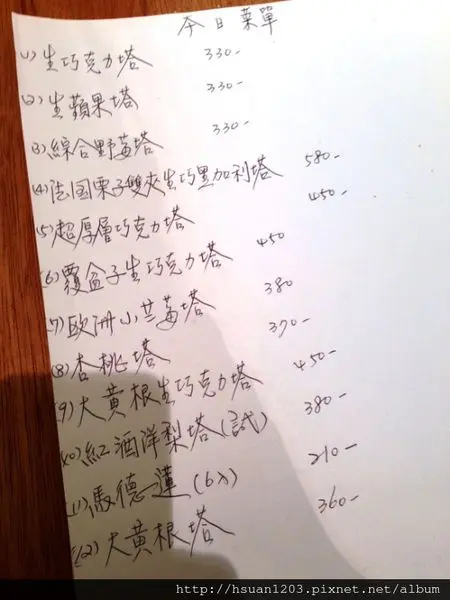 今日菜單
(1) 生巧克力塔 330-
(2) 生蘋果塔 330-
(3) 綜合野莓塔 330-
(4) 法国栗子雙夾生巧黑加利塔 580-
(5) 超厚層巧克力塔 450-
(6) 覆盆子生巧克力塔 450
(7) 歐洲小芸莓塔 380
(8) 杏桃塔 370-
(9) 大黃根生巧克力塔 450-
(10) 紅酒洋梨塔(試) 380-
(11) 馬德蓮(6入) 210-
(12) 大黃根塔 360-
http://hsuan1203.pixnet.net/album